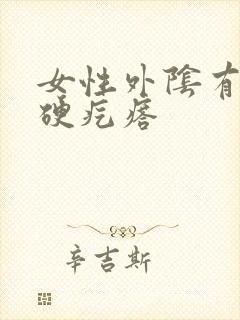 女性外陰有
硬疙瘩
辛吉斯